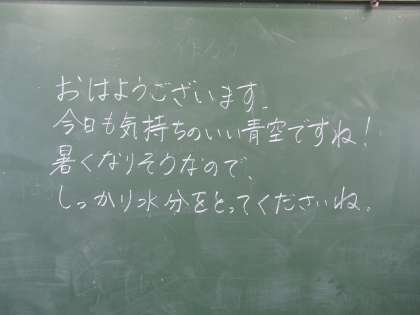 おはようございます。
今日も気持ちのいい青空ですね!
暑くなりそうなので、
しっかり水分をとってくださいね。